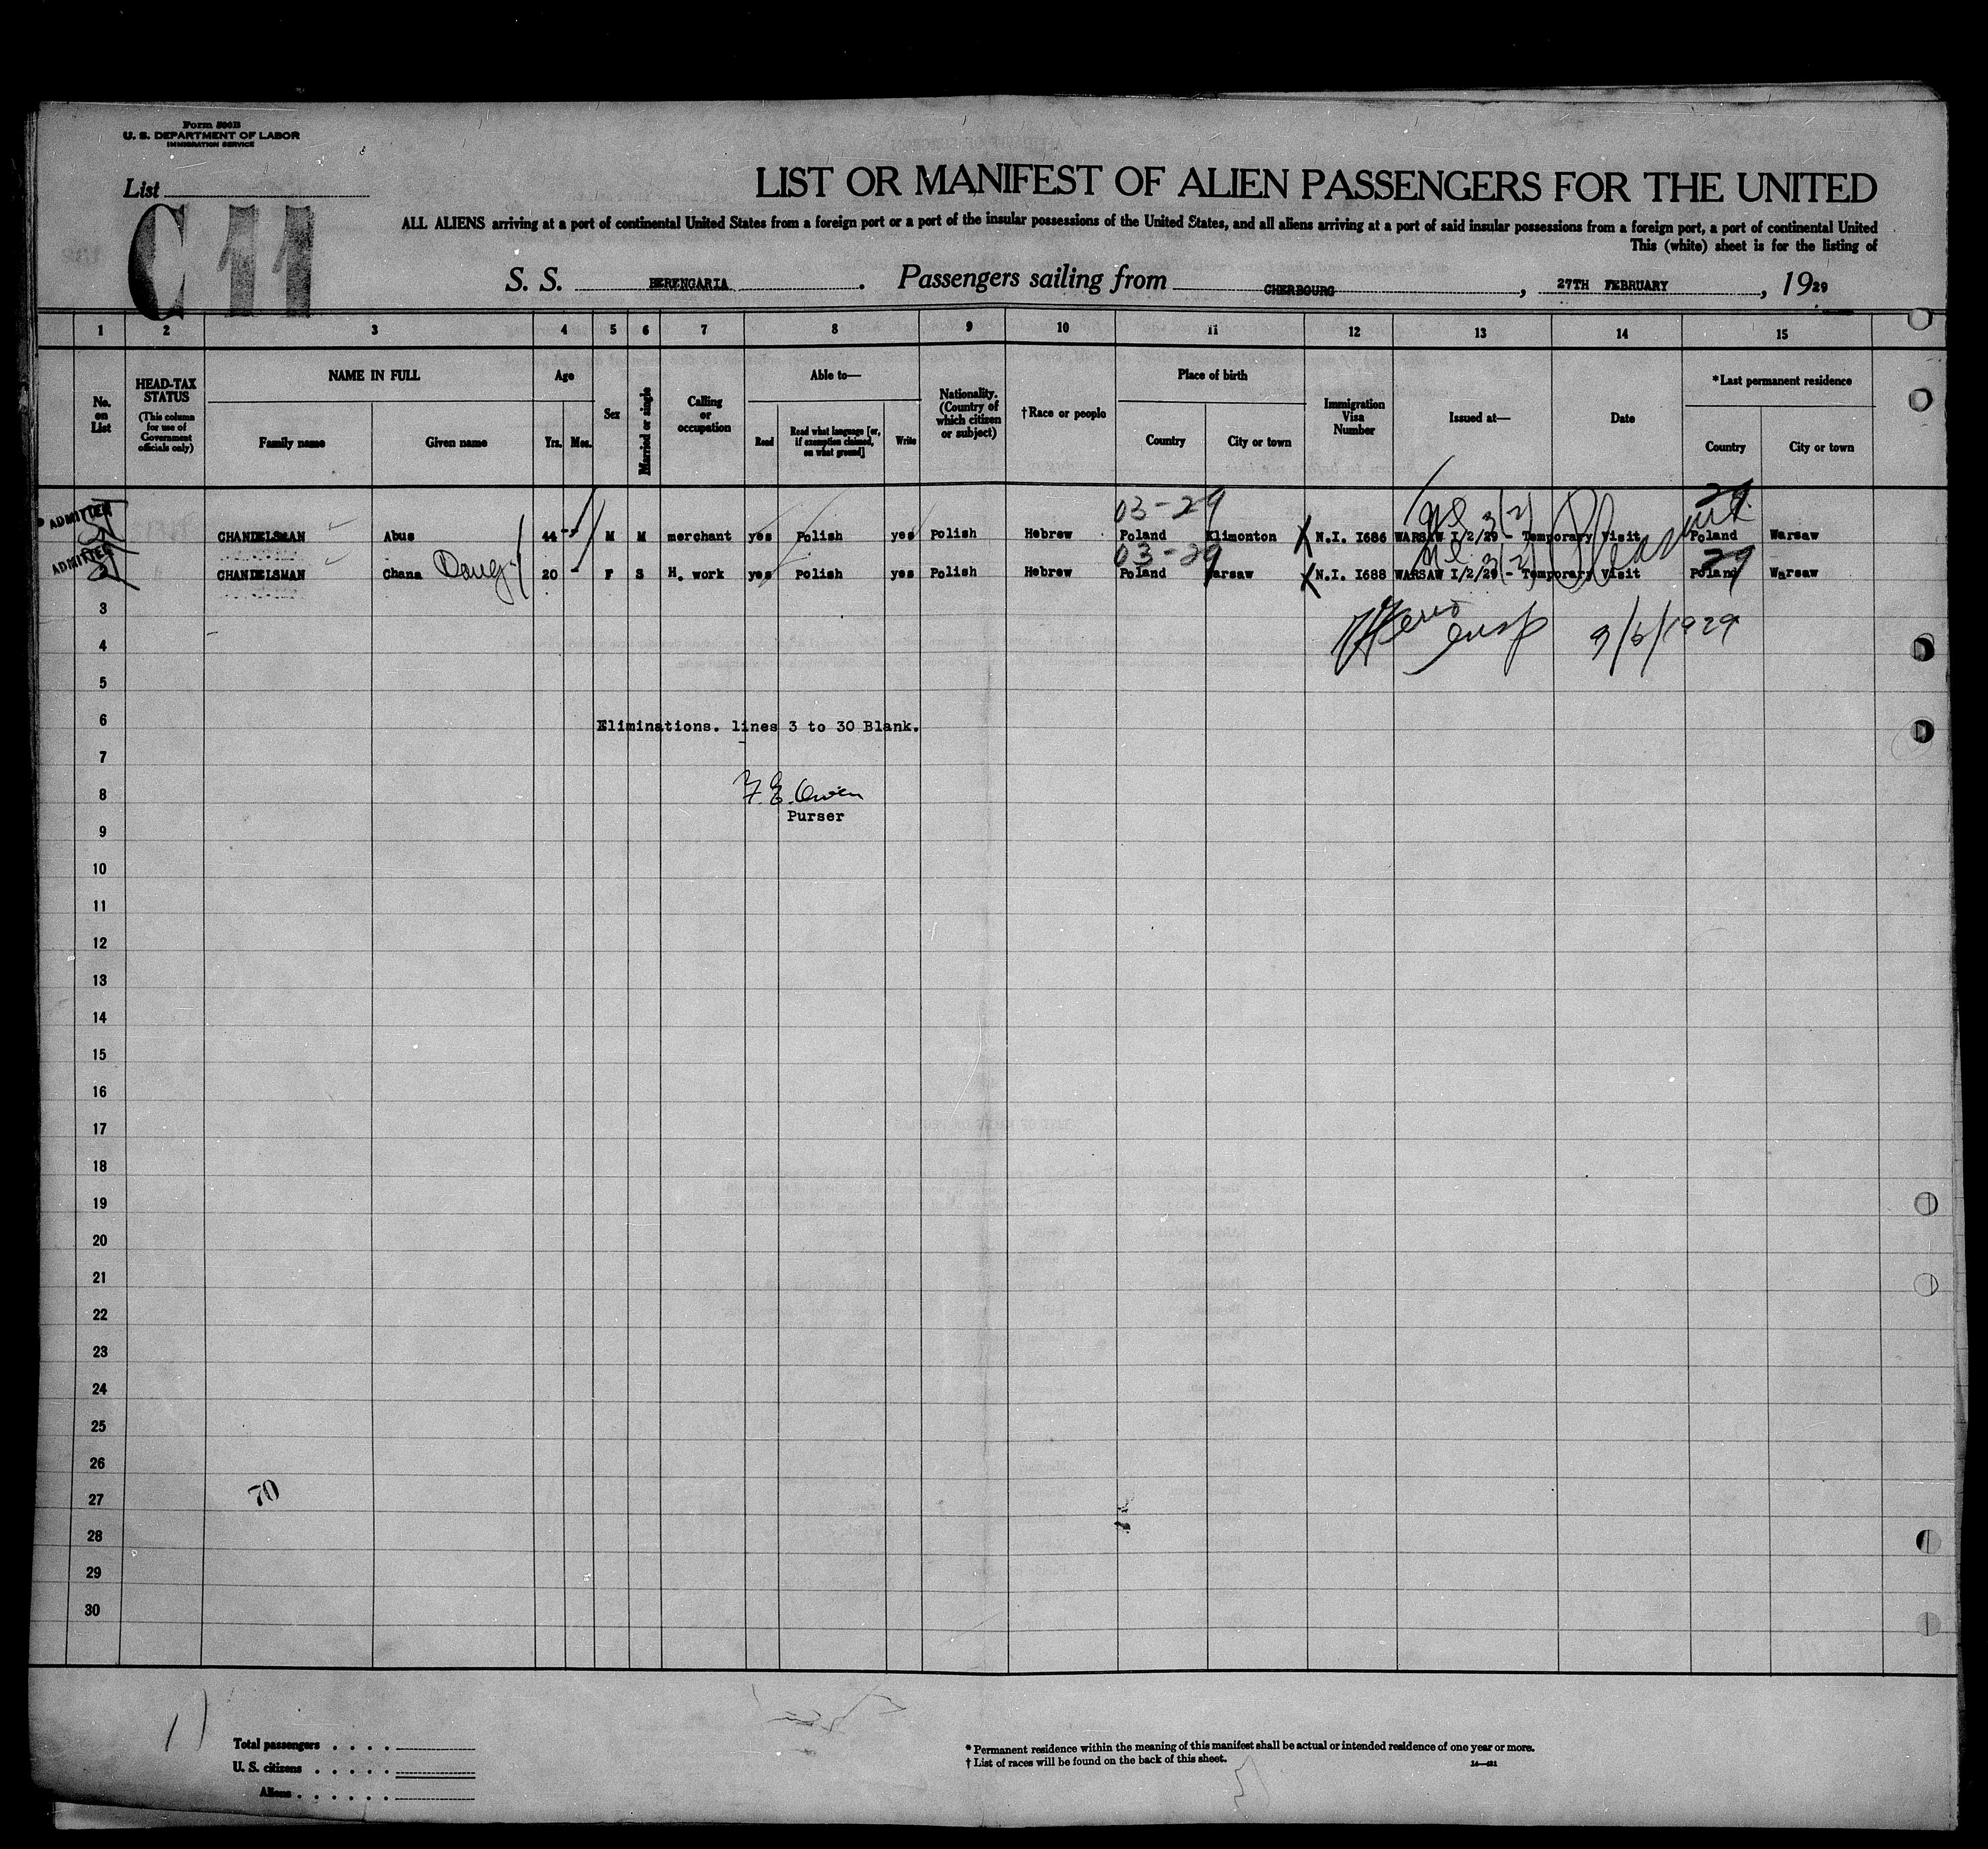 Form 500B
U. S. DEPARTMENT OF LABOR
IMMIGRATION SERVICE
List
C 11
LIST OR MANIFEST OF ALIEN PASSENGERS FOR THE UNITED
ALL ALIENS arriving at a port of continental United States from a foreign port or a port of the insular possessions of the United States, and all aliens arriving at a port of said insular possessions from a foreign port, a port of continental United
This (white) sheet is for the listing of
S. S. BERENGARIA. Passengers sailing from CHERBOURG, 27TH FEBRUARY, 1929
1 2 3 4 5 6 7 8 9 10 11 12 13 14 15
No. on List
HEAD-TAX STATUS (This column for use of Government officials only)
NAME IN FULL
Family name Given name
Age
Yrs. Mos.
Sex
Married or single
Calling or occupation
Able to—
Read Read what language [or, if exemption claimed, on what ground] Write
Nationality. (Country of which citizen or subject)
†Race or people
Place of birth
Country City or town
Immigration Visa Number
Issued at—
Date
*Last permanent residence
Country City or town
03-29 3(2) 29
ADMITTED CHANDELSMAN Abus 44 - M M merchant yes Polish yes Polish Hebrew Poland Klimonton N.I. 1686 WARSAW 1/2/29 - Temporary Visit Pleasure Poland Warsaw
03-29 3(2) 29
ADMITTED 2 CHANDELSMAN Chana Daug. 20 - F S H. work yes Polish yes Polish Hebrew Poland Warsaw N.I. 1688 WARSAW 1/2/29 - Temporary Visit Poland Warsaw
3
insp 3/6/1929
4
5
6
Eliminations. lines 3 to 30 Blank.
7
8
F. E. Owen
Purser
9
10
11
12
13
14
15
16
17
18
19
20
21
22
23
24
25
26
70
27
28
29
30
Total passengers . . . .
U. S. citizens . . . . .
Aliens . . . . . .
* Permanent residence within the meaning of this manifest shall be actual or intended residence of one year or more.
† List of races will be found on the back of this sheet.